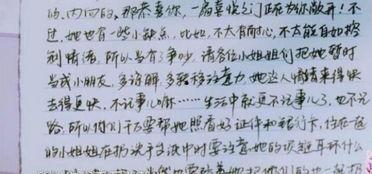 的、内向的，那恭喜你，一扇喜悦之门正为你敞开！不
过，她也有一些小缺点，比如，不太有耐心，不太能自如控
制情绪，所以易有争吵。请各位小姐姐们把她暂时
当成小朋友，多谅解，多转移注意力，她这人情绪来得快
去得更快，不记事儿嘛……生活中就更不记事儿了，也不记
路，所以你们千万要帮她照看好证件和银行卡，住在一起
的小姐姐在扔洗手台淡中时要注意她的项链耳环什么